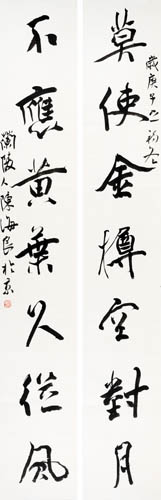 莫使金樽空對月
歲庚子之初冬
不應黃葉久從風
蘭陵人陳海良於京